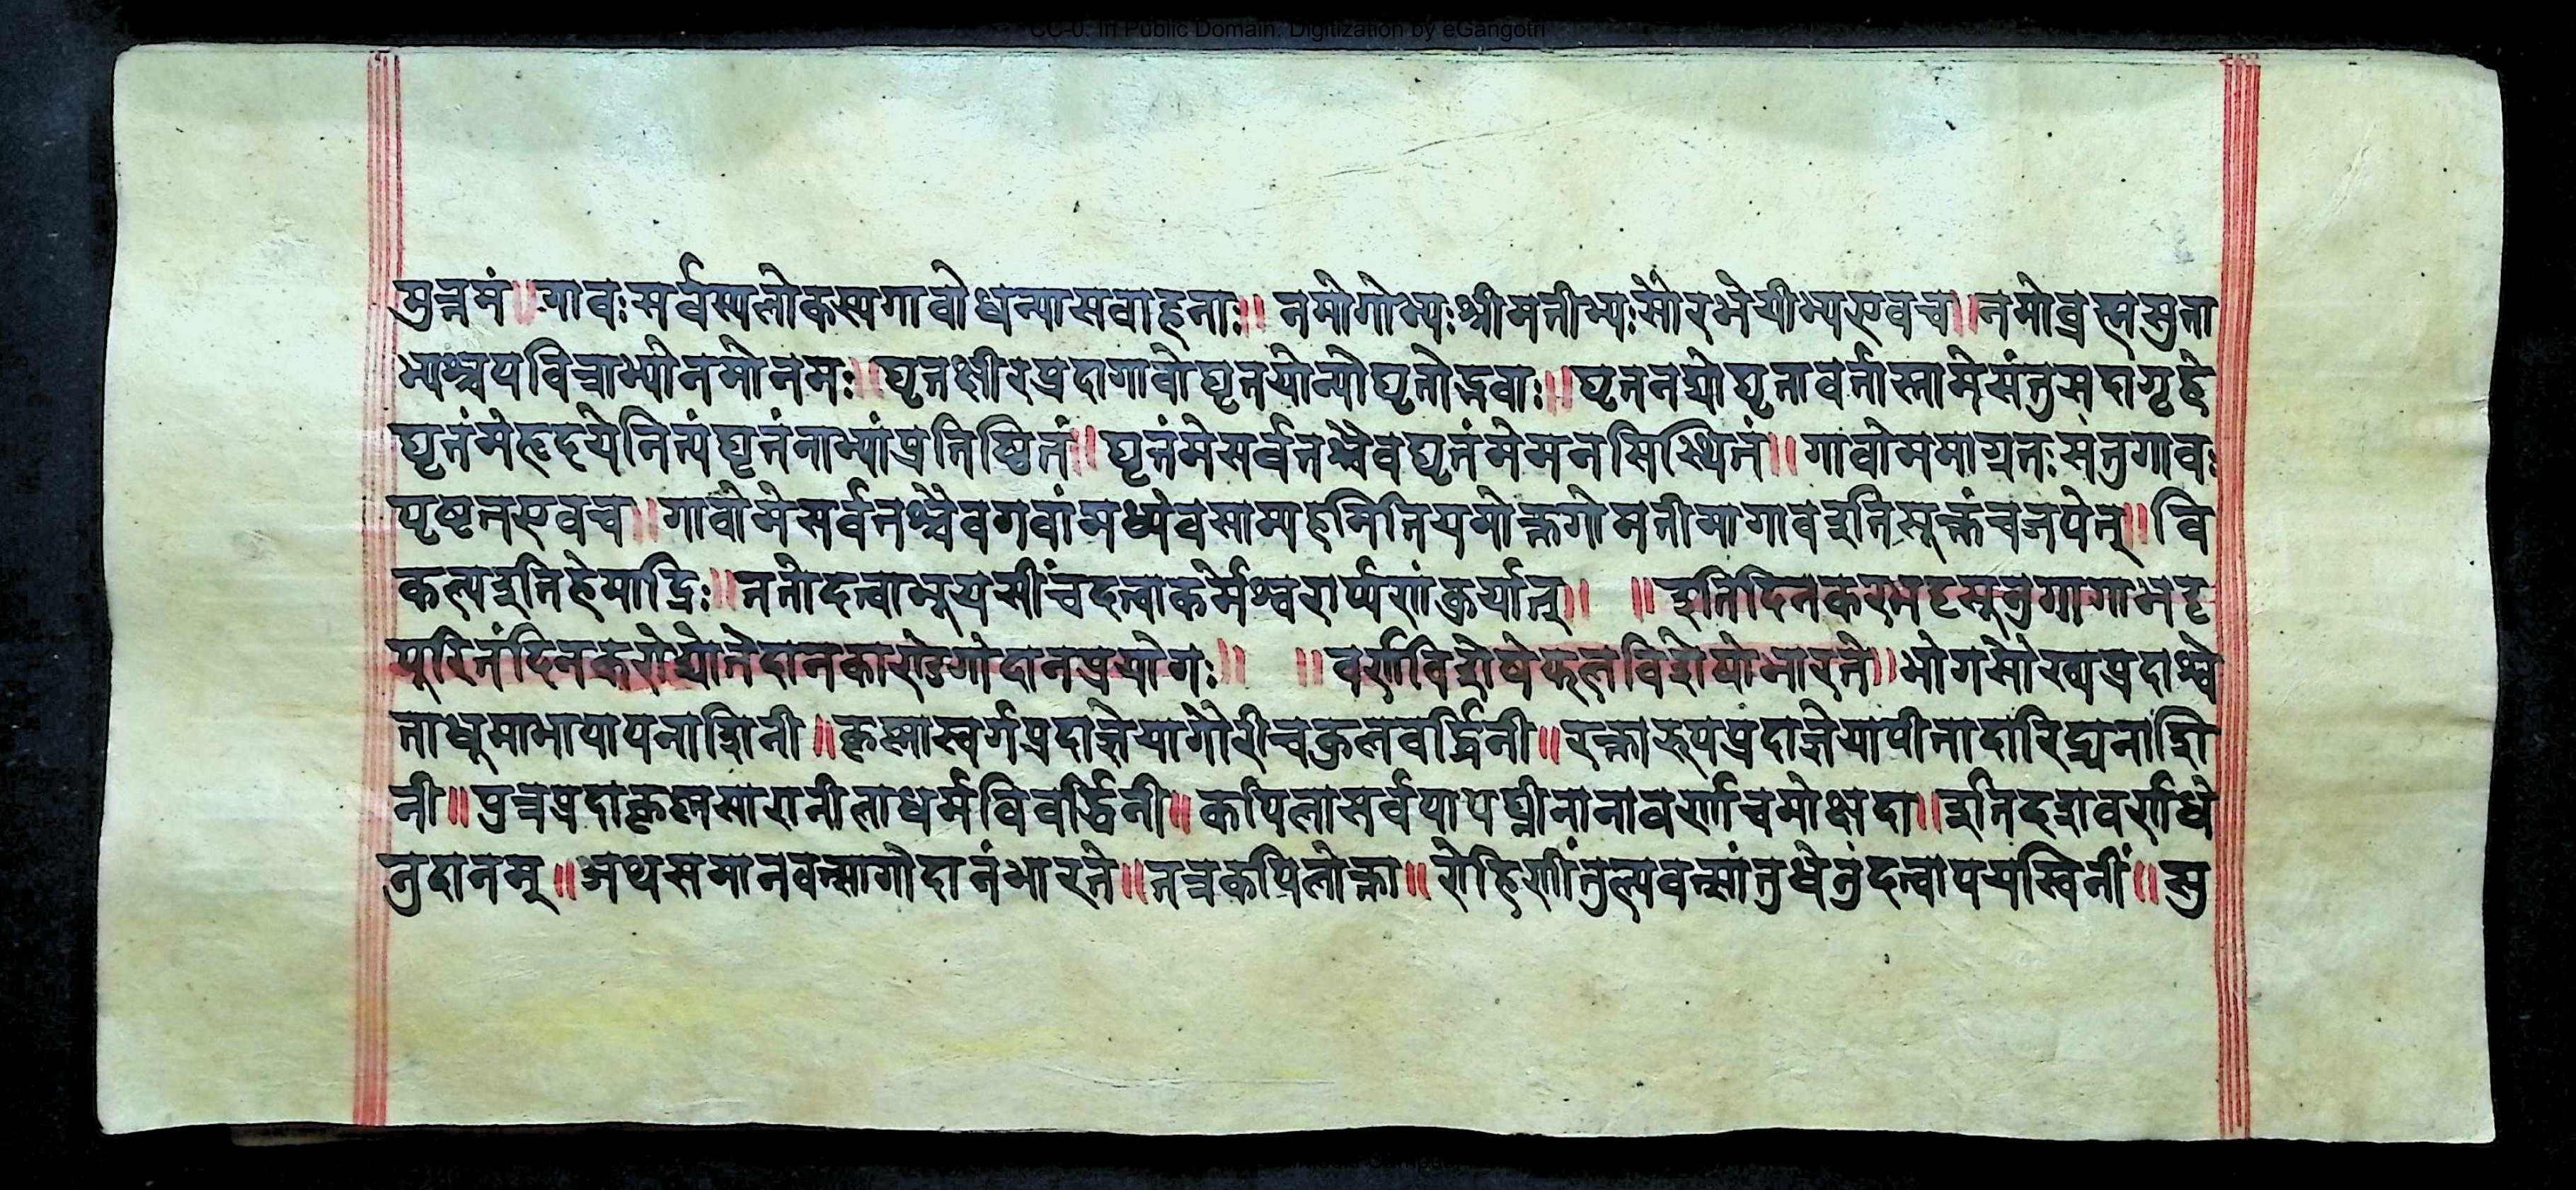 CC-0. In Public Domain. Digitization by eGangotri
मुत्तमं॥गावःसर्वस्यलोकस्यगावोधन्यासवाहनाः॥ नमोगोभ्यःश्रीमतीभ्यःसौरभेयीभ्यएवच॥नमोब्रह्मसुता
भ्यश्चपवित्राभ्योनमोनमः॥घृतक्षीरप्रदागावोघृतयोन्योघृतोद्भवाः॥घृतनद्योघृतावर्तास्तामेसंतुसदागृहे
घृतंमेहृदयेनित्यंघृतंनाभ्यांप्रतिष्ठितं॥घृतंमेसर्वतश्चैवघृतंमेमनसिस्थितं॥गावोममाग्रतःसंतुगावः
पृष्टतएवच॥गावोमेसर्वतश्चैवगवांमध्येवसाम्यहमितियमोक्तगोमतीमागावइतिसूक्तंचजपेत्॥वि
कल्पइतिहेमाद्रिः॥ततोदत्वाभूयसींचदत्वाकर्मेश्वरार्प्पणंकुर्यात्॥ ॥इतिदिनकरभट्टसूनुगागाभट्ट
पूरितंदिनकरोद्योतेदानकाण्डेगोदानप्रयोगः॥ ॥वर्णविशेषेफलविशेषोभारते॥भोगसौख्यप्रदाश्वे
ताधूमाभापापनाशिनी॥कृष्णास्वर्गप्रदाज्ञेयागौरीचकुलवर्द्धिनी॥रक्तारूपप्रदाज्ञेयापीतादारिद्र्यनाशि
नी॥पुत्रप्रदाकृष्णसारानीलाधर्मविवर्द्धिनी॥कपिलासर्वपापघ्नीनानावर्णाचमोक्षदा॥इतिदशवर्णधे
नुदानम्॥अथसमानवत्सागोदानंभारते॥तत्रकपिलोक्ता॥रोहिणींतुल्यवत्सांतुधेनुंदत्वापयस्विनीं॥सु